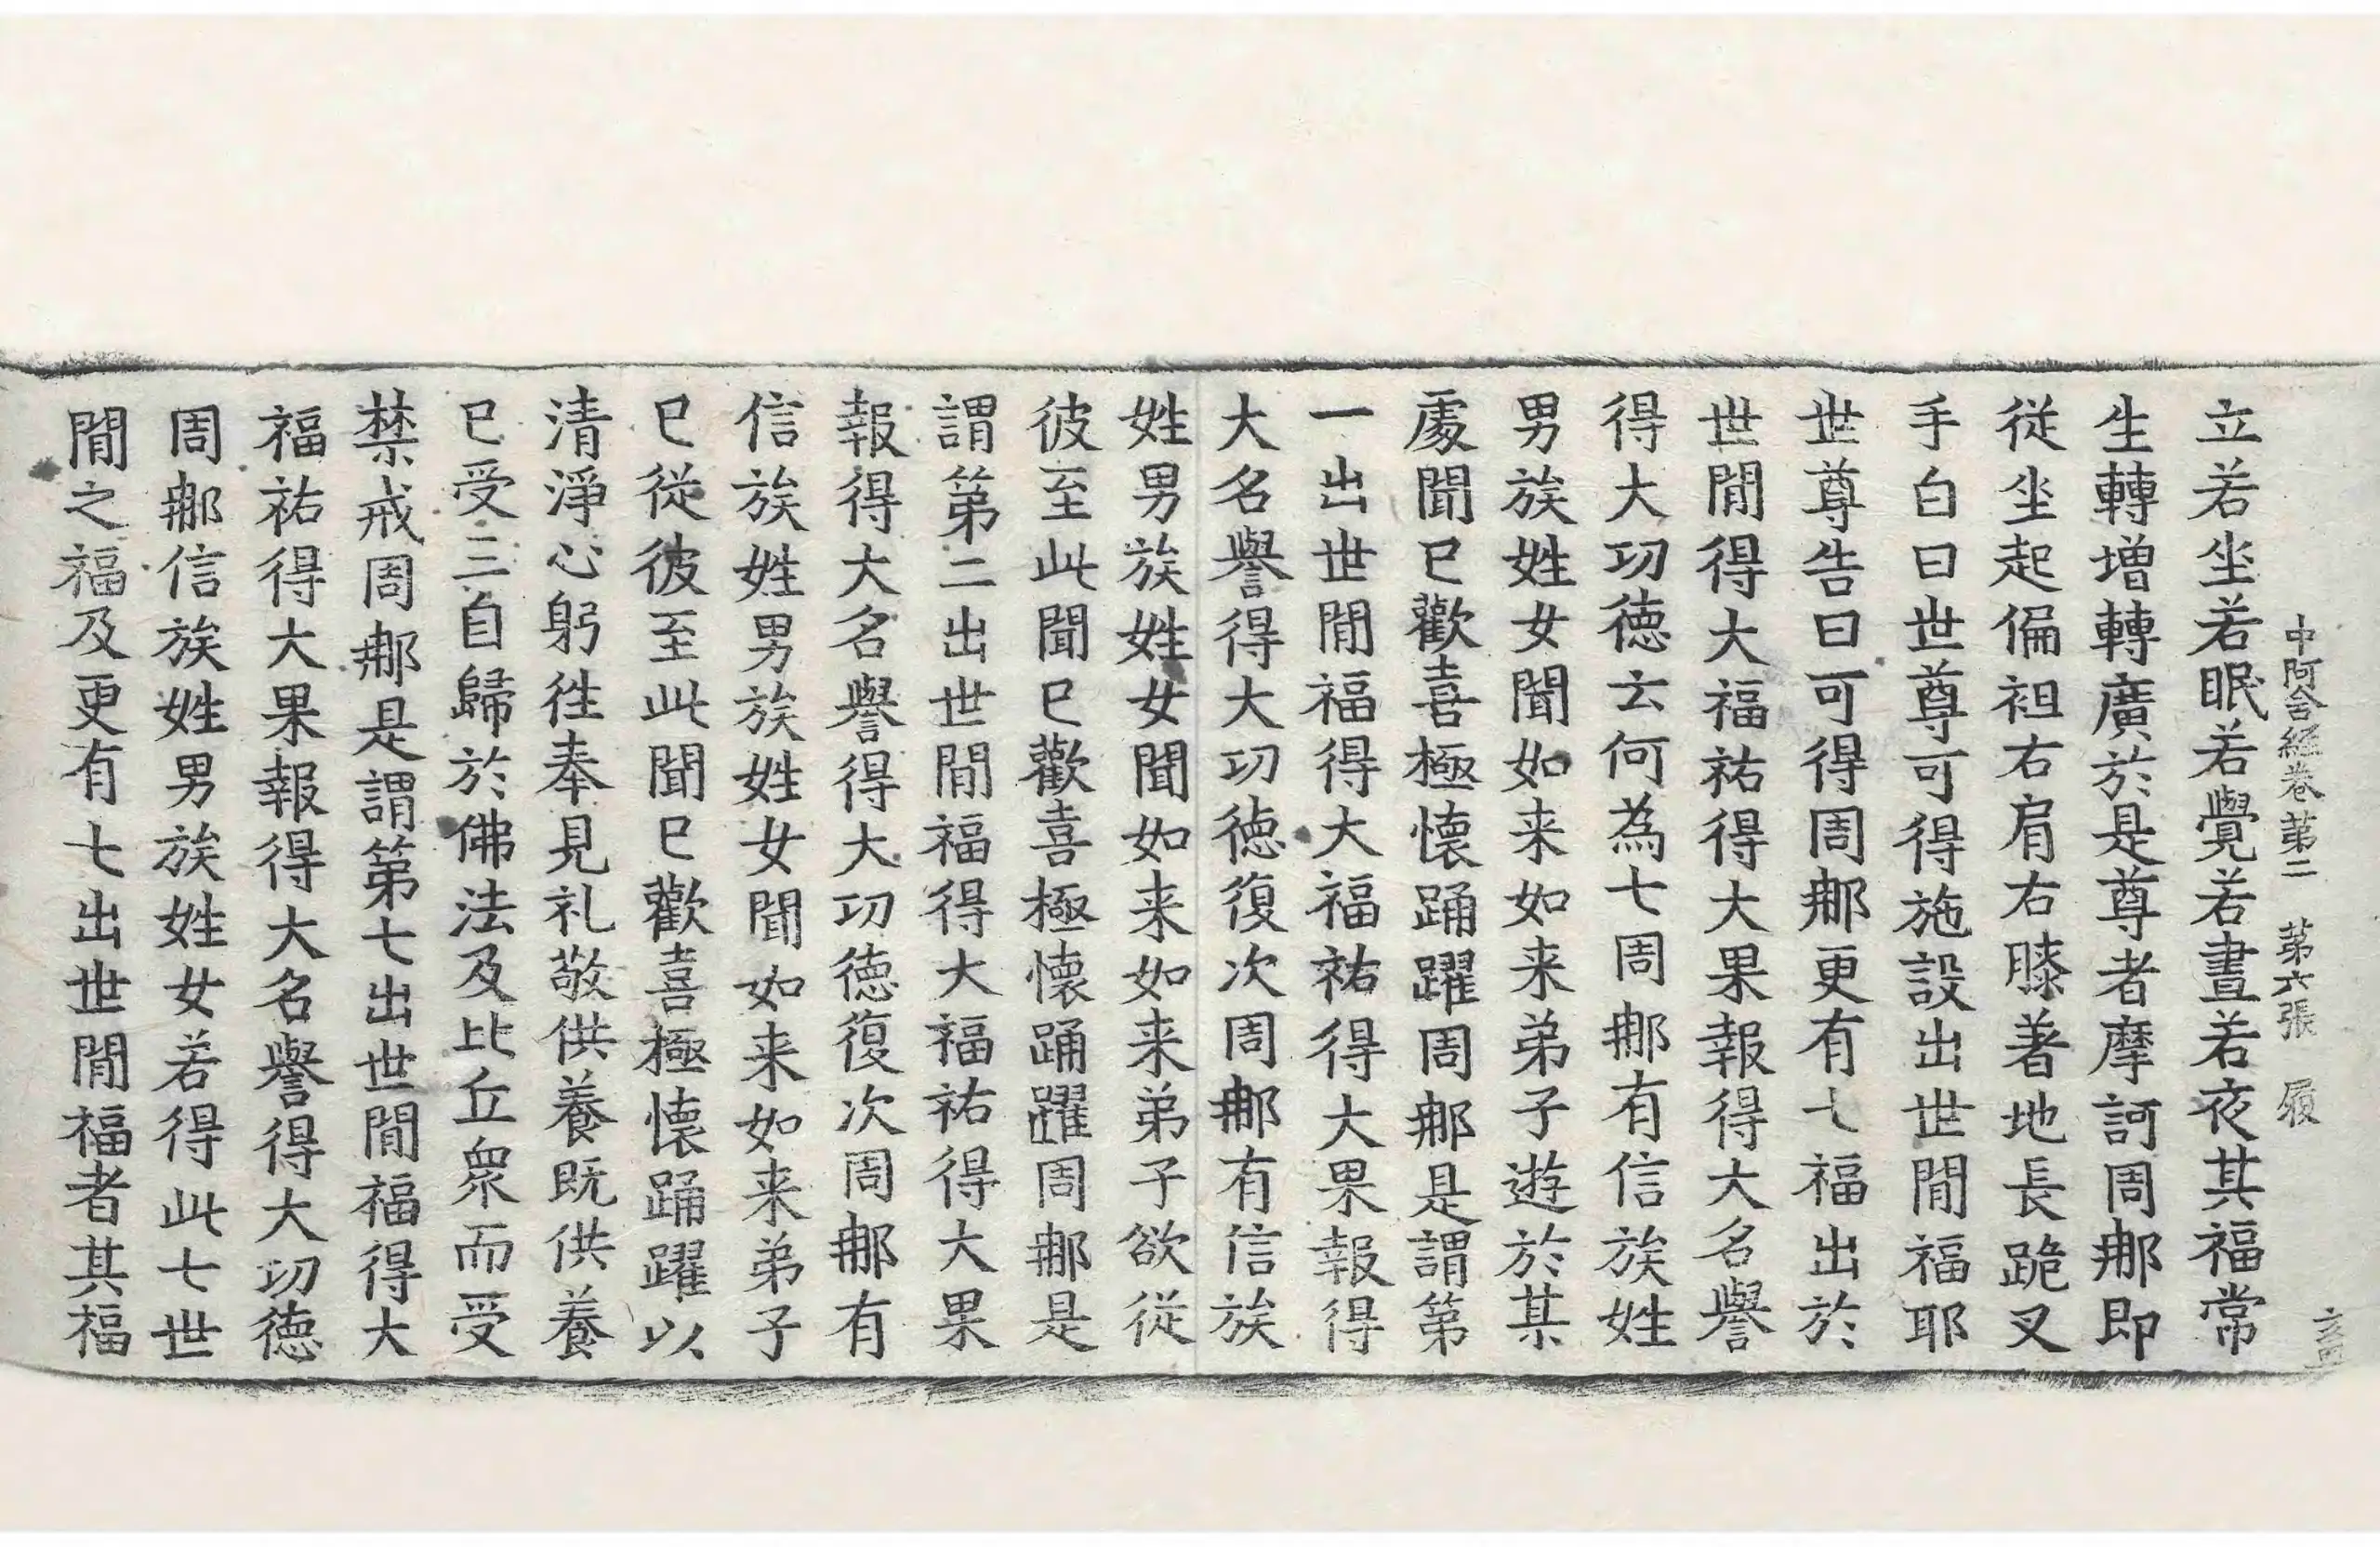 中阿含経卷第二　第六張　履
立若坐若眠若覺若晝若夜其福常
生轉增轉廣於是尊者摩訶周䣯即
從坐起偏袒右肩右膝著地長跪叉
手白曰世尊可得施設出世閒福耶
世尊告曰可得周䣯更有七福出於
世閒得大福祐得大果報得大名譽
得大功德云何為七周䣯有信族姓
男族姓女聞如来如来弟子遊於某
處聞已歡喜極懷踊躍周䣯是謂第
一出世閒福得大福祐得大果報得
大名譽得大功德復次周䣯有信族
姓男族姓女聞如来如来弟子欲從
彼至此聞已歡喜極懷踊躍周䣯是
謂第二出世閒福得大福祐得大果
報得大名譽得大功德復次周䣯有
信族姓男族姓女聞如来如来弟子
已從彼至此聞已歡喜極懷踊躍以
清淨心躬往奉見礼敬供養既供養
已受三自歸於佛法及比丘衆而受
禁戒周䣯是謂第七出世閒福得大
福祐得大果報得大名譽得大功德
周䣯信族姓男族姓女若得此七世
閒之福及更有七出世閒福者其福